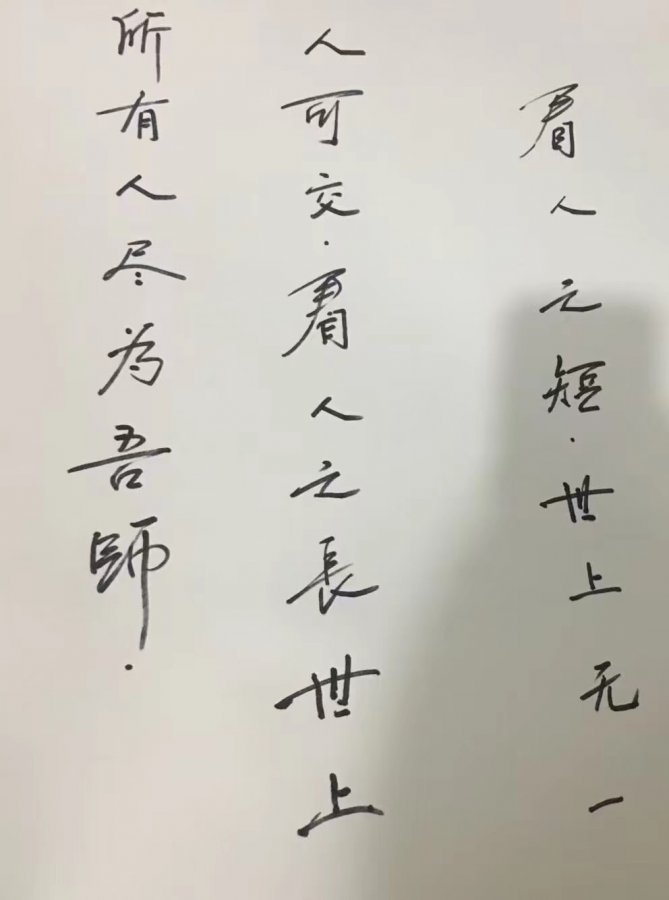 看人之短·世上无一
人可交·看人之長世上
所有人尽为吾師·